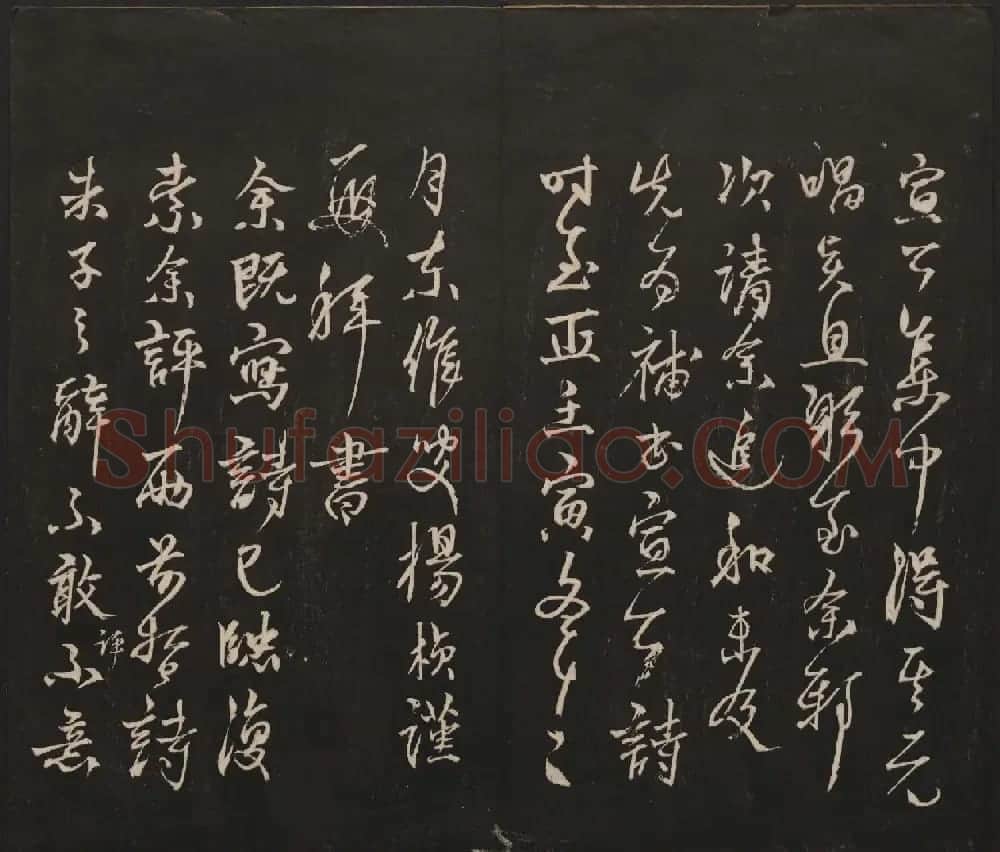 宣公集中得其元
唱矣且躬至余邨
次請余追和未及
先為補書宣公詩
时至正壬寅冬十二
月東維叟楊楨謹
再拜書
余既寫詩已復
索余評兩前哲詩
朱子之辭不敢評不意
Shufaziliao.COM